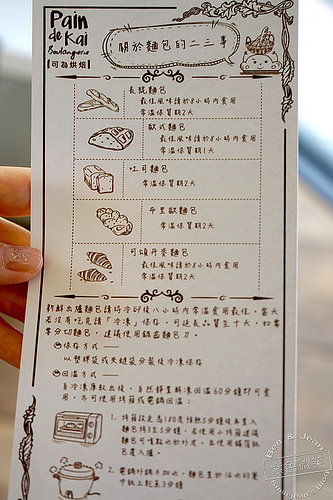 Pain
de Kai
Boulangerie
可為烘焙
關於麵包的二三事
長棍麵包
最佳風味請於8小時內食用
常溫保質期2天
歐式麵包
最佳風味請於8小時內食用
常溫保質期1天
吐司麵包
常溫保質期2天
布里歐麵包
常溫保質期2天
可頌丹麥麵包
最佳風味請於8小時內食用
常溫保質期2天
新鮮出爐麵包請待冷卻後八小時內常溫食用最佳，當天
若沒有吃完請「冷凍」保存，可延長品質至十天，如需
享分切麵包，建議使用鋸齒麵包刀。
保存方式—
以塑膠袋或夾鏈袋分裝後冷凍保存
回溫方式——
自冷凍庫取出後，自然靜置解凍回溫60分鐘即可食
用，亦可使用烤箱或電鍋回溫：
1.
2.
Ben & Jean